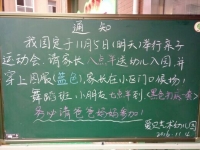 通知
我园定于11月5日(明天)举行亲子
运动会。请家长八点半送幼儿入园,并
穿上园服(蓝色),家长在小区门口候场!
舞蹈班,小朋友七点半到
务必请爸爸妈妈参加!
艺术幼儿园
2016.11.4